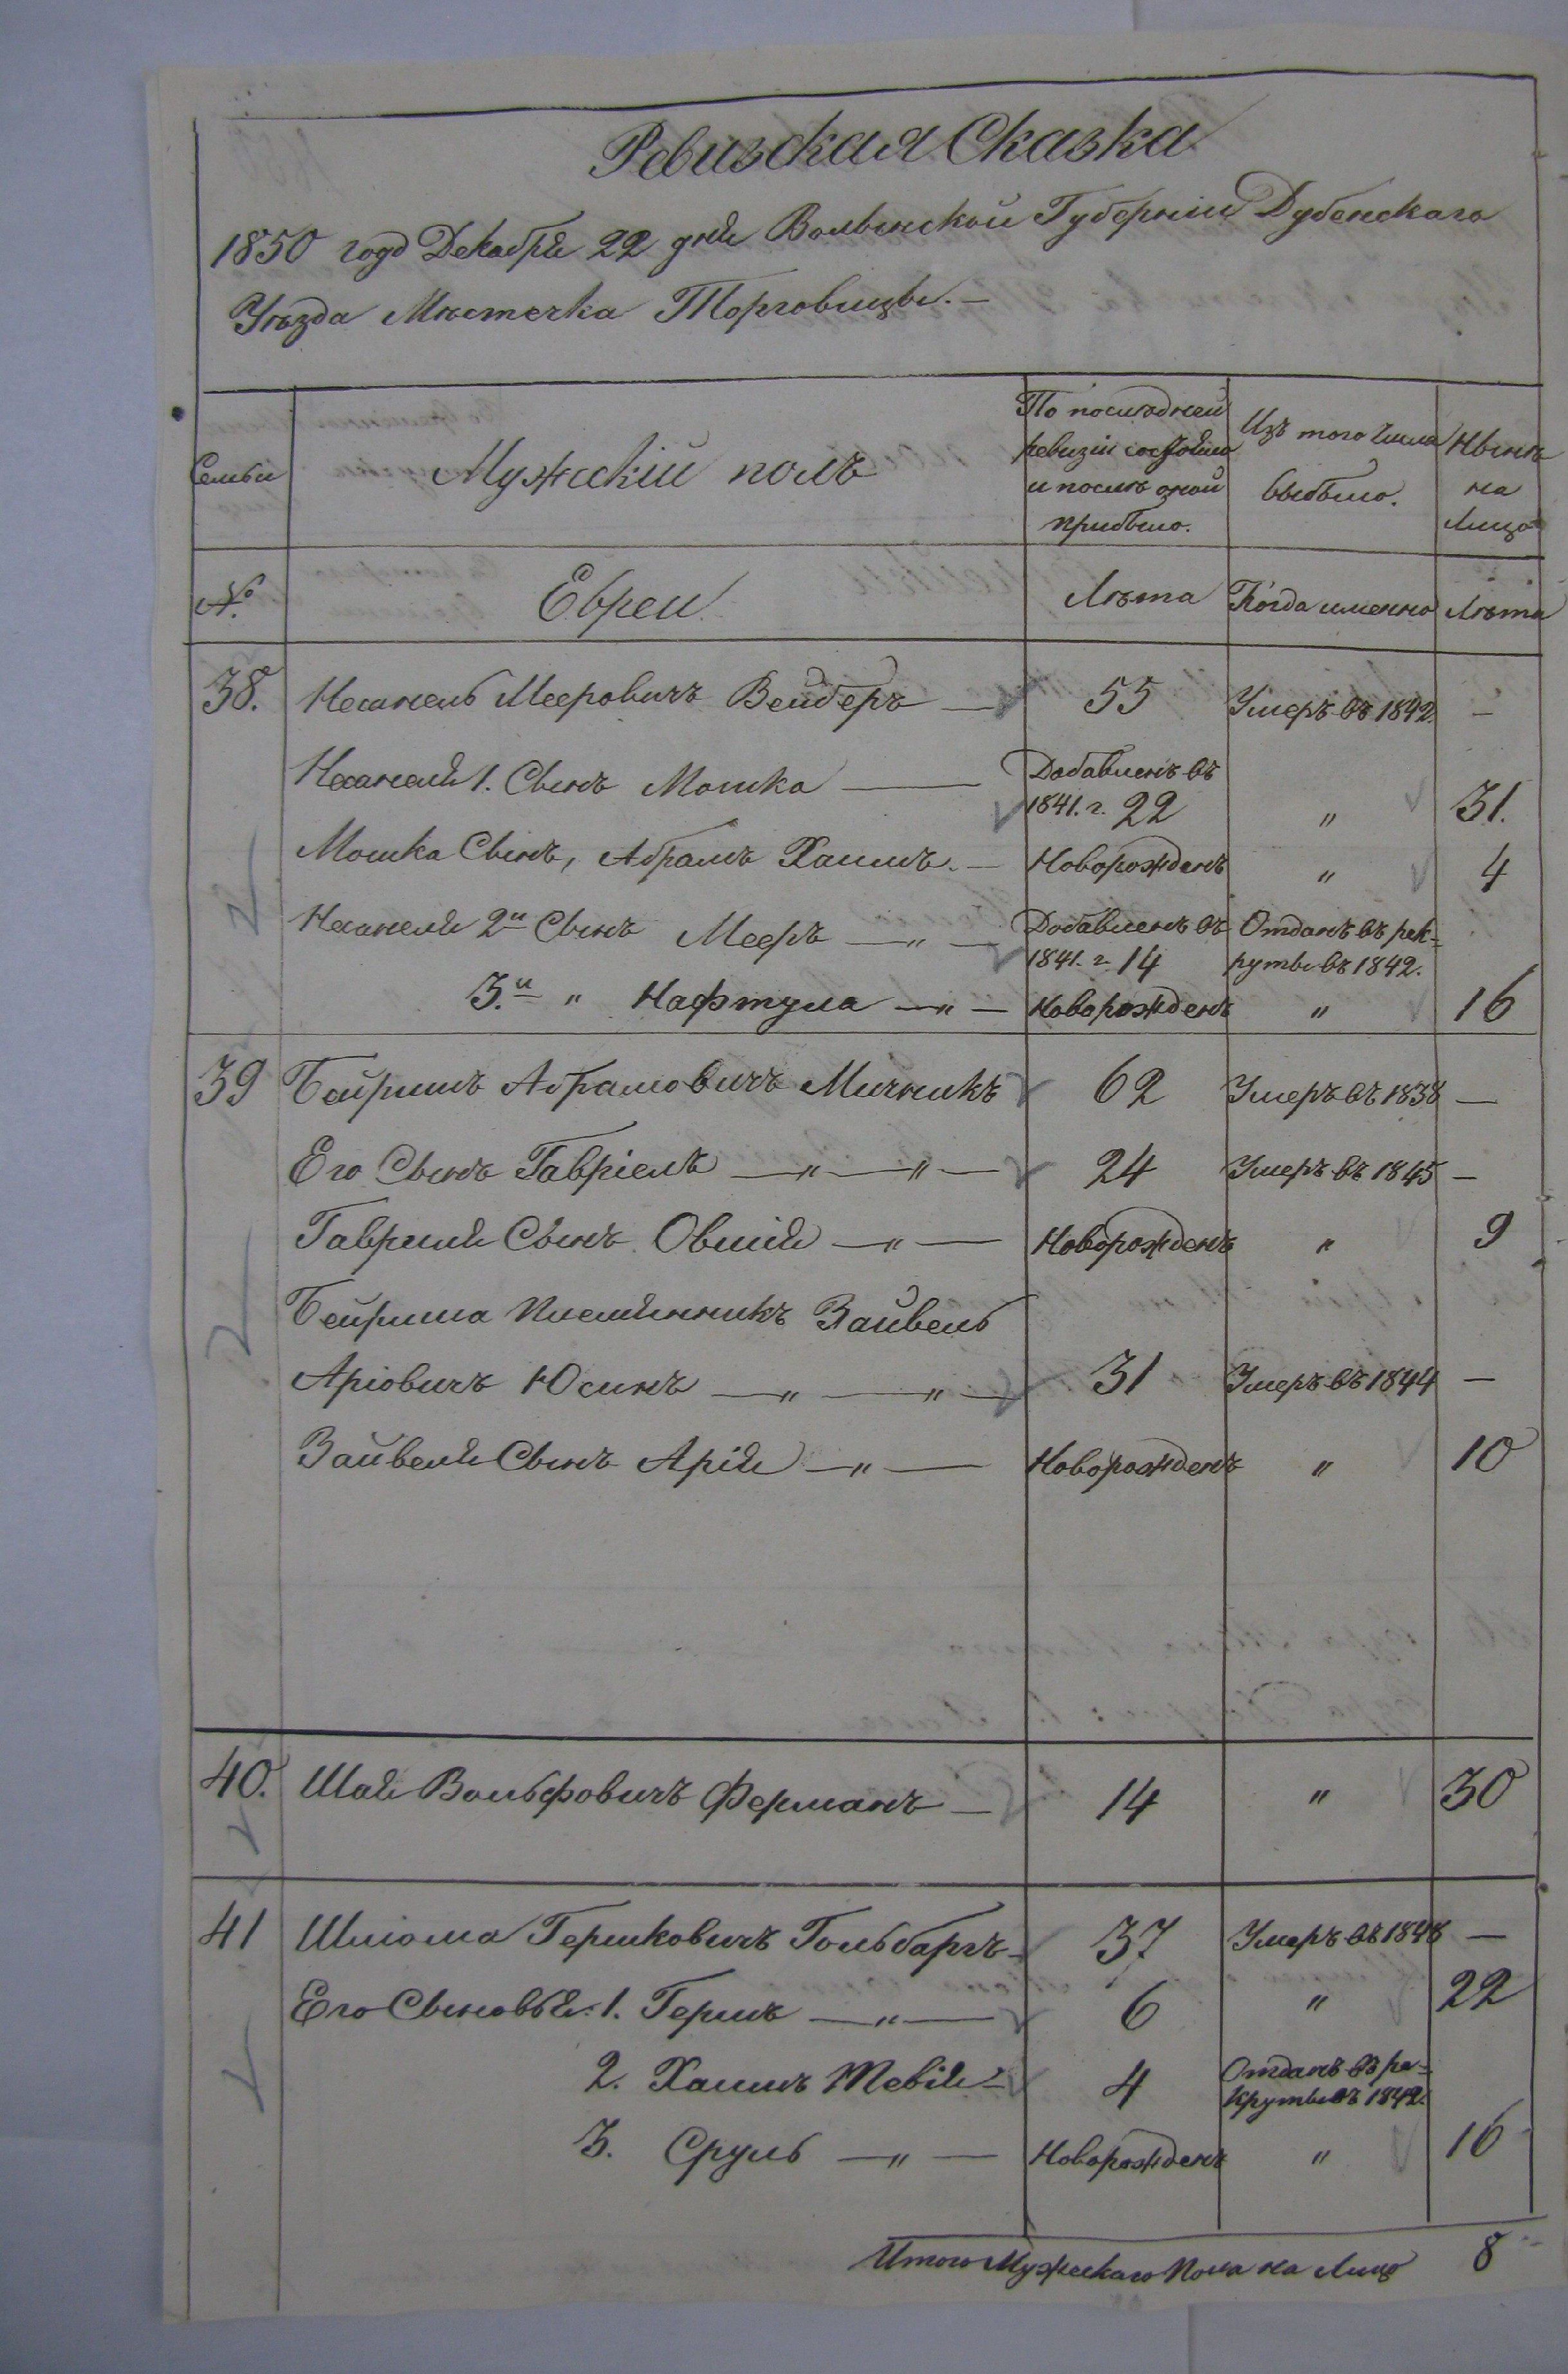 Ревизская Сказка
1850 года Декабря 22 дня Волынской Губернии Дубенскаго
Уѣзда Мѣстечка Торговицы. —
Семьи
Мужескій полъ
По послѣдней
ревизіи состояло
и послѣ оной
прибыло.
Изъ того числа
выбыло.
Нынѣ
на
Лицо
№.
Евреи
Лѣта Когда именно Лѣта
38. Несанель Мееровичъ Вейберъ — 55 Умеръ въ 1842. —
Несанеля 1. Сынъ Мошка — Добавленъ въ
1841. г. 22 " 31.
Мошка Сынъ, Абрамъ Хаимъ. — Новорожденъ " 4
Несанеля 2й Сынъ Мееръ — " — Добавленъ въ Отданъ въ рек-
1841. г. 14 руты въ 1842.
3.й " Нафтула — " — Новорожденъ " 16
39 Бейришъ Абрамовичъ Мичникъ 62 Умеръ въ 1838 —
Его Сынъ Гавріелъ — " — " — 24 Умеръ въ 1845 —
Гавриля Сынъ Овшія — " — Новорожденъ " 9
Бейриша племянникъ Зайвель
Аріовичъ Юсимъ — " — " — 31 Умеръ въ 1844 —
Зайвеля Сынъ Арія — " — Новорожденъ " 10
40. Шая Вольфовичъ Ферманъ — 14 " 30
41 Шлиома Гершковичъ Гольбаргъ — 37 Умеръ въ 1848 —
Его Сыновья: 1. Гершъ — " — 6 " 22
2. Хаимъ Тевія — 4 Отданъ въ ре-
круты въ 1842.
3. Сруль — " — Новорожденъ " 16
Итого Мужескаго Пола на Лицо 8